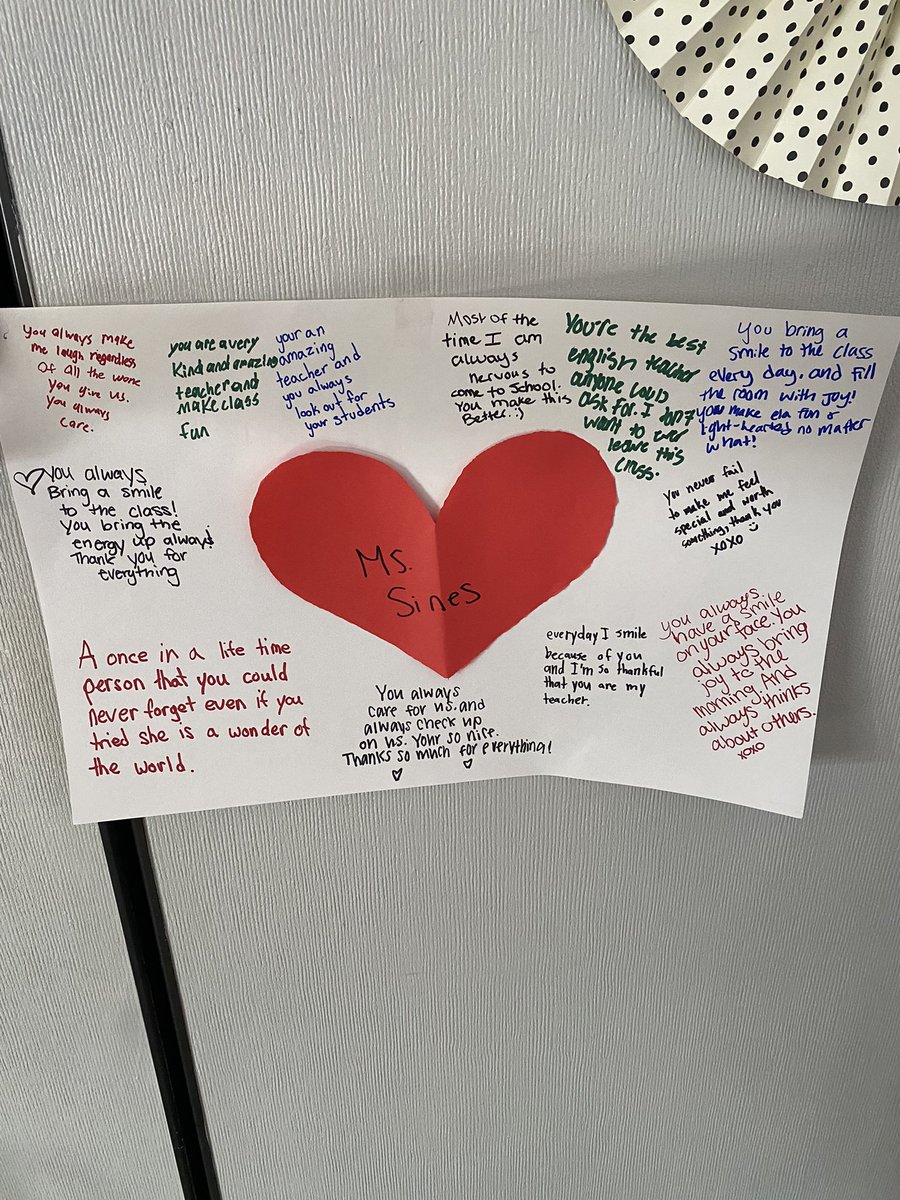 You always make
me laugh regardless
Of all the work
you give us.
You always
care.
you are a very
Kind and amazing
teacher and
make class
fun
your an
amazing
teacher and
you always
look out for
your students
Most of the
time I am
always
nervous to
come to school.
You make this
Better. :)
You're the best
english teacher
anyone could
ask for. I don't
want to ever
leave this
class.
You bring a
smile to the class
every day, and fill
the room with joy!
you make ela fun &
light-hearted no matter
what!
♡ You always
Bring a smile
to the class!
You bring the
energy up always!
Thank you for
everything
You never fail
to make me feel
special and worth
something, thank you
xoxo ☺
Ms.
Sines
A once in a life time
person that you could
never forget even if you
tried she is a wonder of
the world.
You always
care for us. and
always check up
on us. Your so nice.
Thanks so much for everything!
♡ ♡
everyday I smile
because of you
and I'm so thankful
that you are my
teacher.
you always.
have a smile
on your face. You
always bring
joy to the
morning And
always thinks
about others.
xoxo